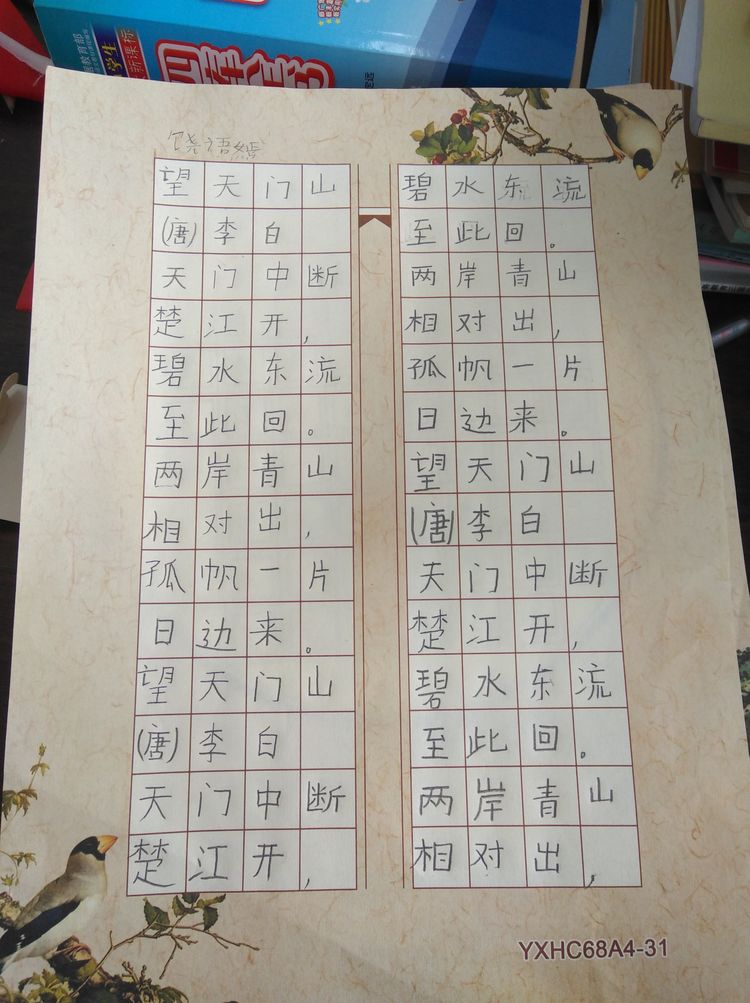 饶语嫣
望天门山
(唐)李白
天门中断
楚江开,
碧水东流
至此回。
两岸青山
相对出,
孤帆一片
日边来。
望天门山
(唐)李白
天门中断
楚江开,
碧水东流
至此回。
两岸青山
相对出,
孤帆一片
日边来。
望天门山
(唐)李白
天门中断
楚江开,
碧水东流
至此回。
两岸青山
相对出,
YXHC68A4-31